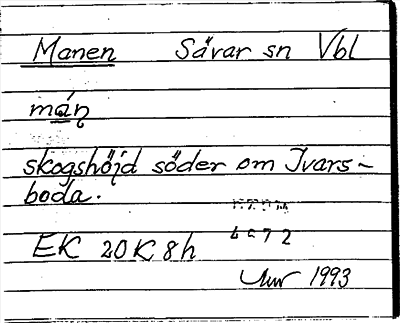 Manen Sävar sn Vbl
mán
skogshöjd söder om Ivars-
boda.
EK 20K 8h
1993